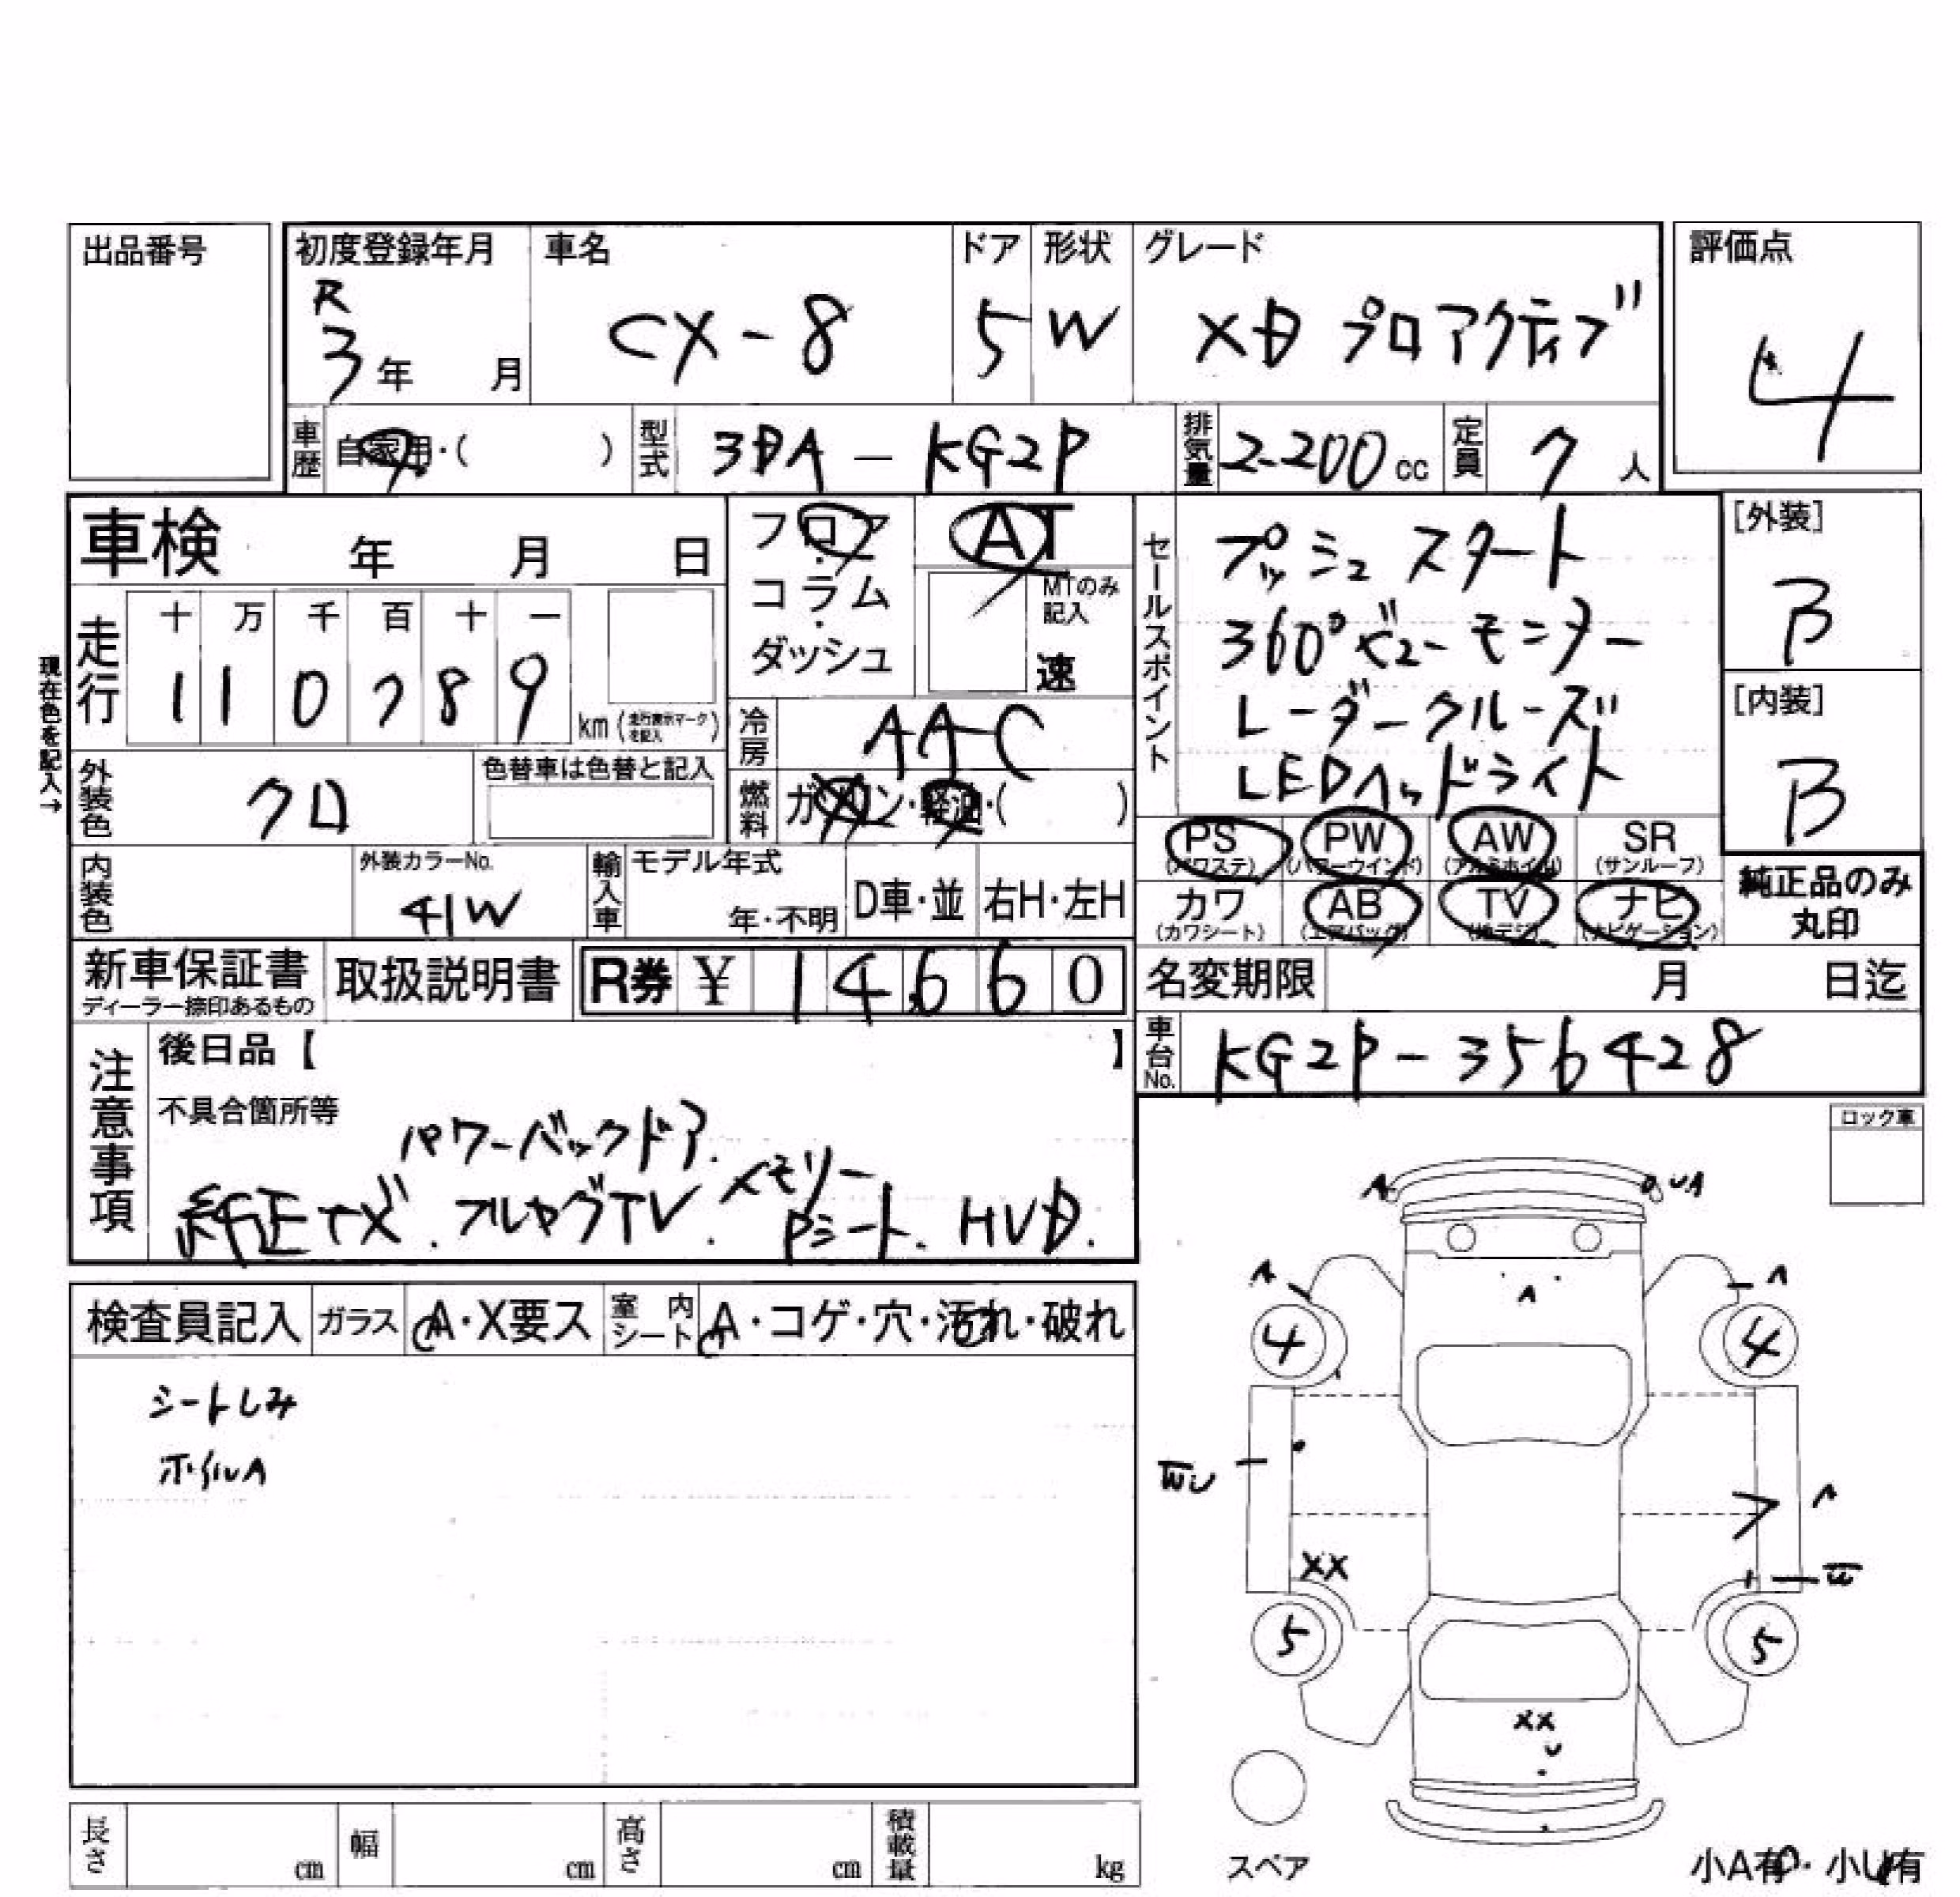 出品番号
初度登録年月 車名 ドア 形状 グレード 評価点
R
3年 月 CX-8 5 W XD プロアクティブ 4
車歴 自家用・( ) 型式 3DA-KG2P 排気量 2200cc 定員 7人
車検 年 月 日
フロア・コラム・ダッシュ
AT
MTのみ記入
速
セールスポイント
プッシュスタート
360°ビューモニター
レーダークルーズ
LEDヘッドライト
[外装]
B
[内装]
B
現在色を記入→
走行 十 万 千 百 十 一
1 1 0 7 8 9 km (走行表示マークを記入)
冷房 AAC
外装色 クロ 色替車は色替と記入
燃料 ガソリン・軽油・( )
PS (パワステ) PW (パワーウインド) AW (アルミホイル) SR (サンルーフ)
カワ (カワシート) AB (エアバッグ) TV (地デジ) ナビ (ナビゲーション)
純正品のみ
丸印
内装色 外装カラーNo. 41W 輸入車 モデル年式 年・不明 D車・並 右H・左H
新車保証書 ディーラー捺印あるもの 取扱説明書 R券 ¥ 14,660
名変期限 月 日迄
車台No. KG2P-356428
注意事項
後日品【 】
不具合箇所等
パワーバックドア.
純正ナビ.フルセグTV.メモリーPシート.HUD.
ロック車
検査員記入 ガラス A・X要ス 室内シート A・コゲ・穴・汚れ・破れ
シートしみ
ホイルA
A UA
A A
A
4 4
WU A
XX W
5 5
XX
U
スペア
小A有・小U有
長さ cm 幅 cm 高さ cm 積載量 kg